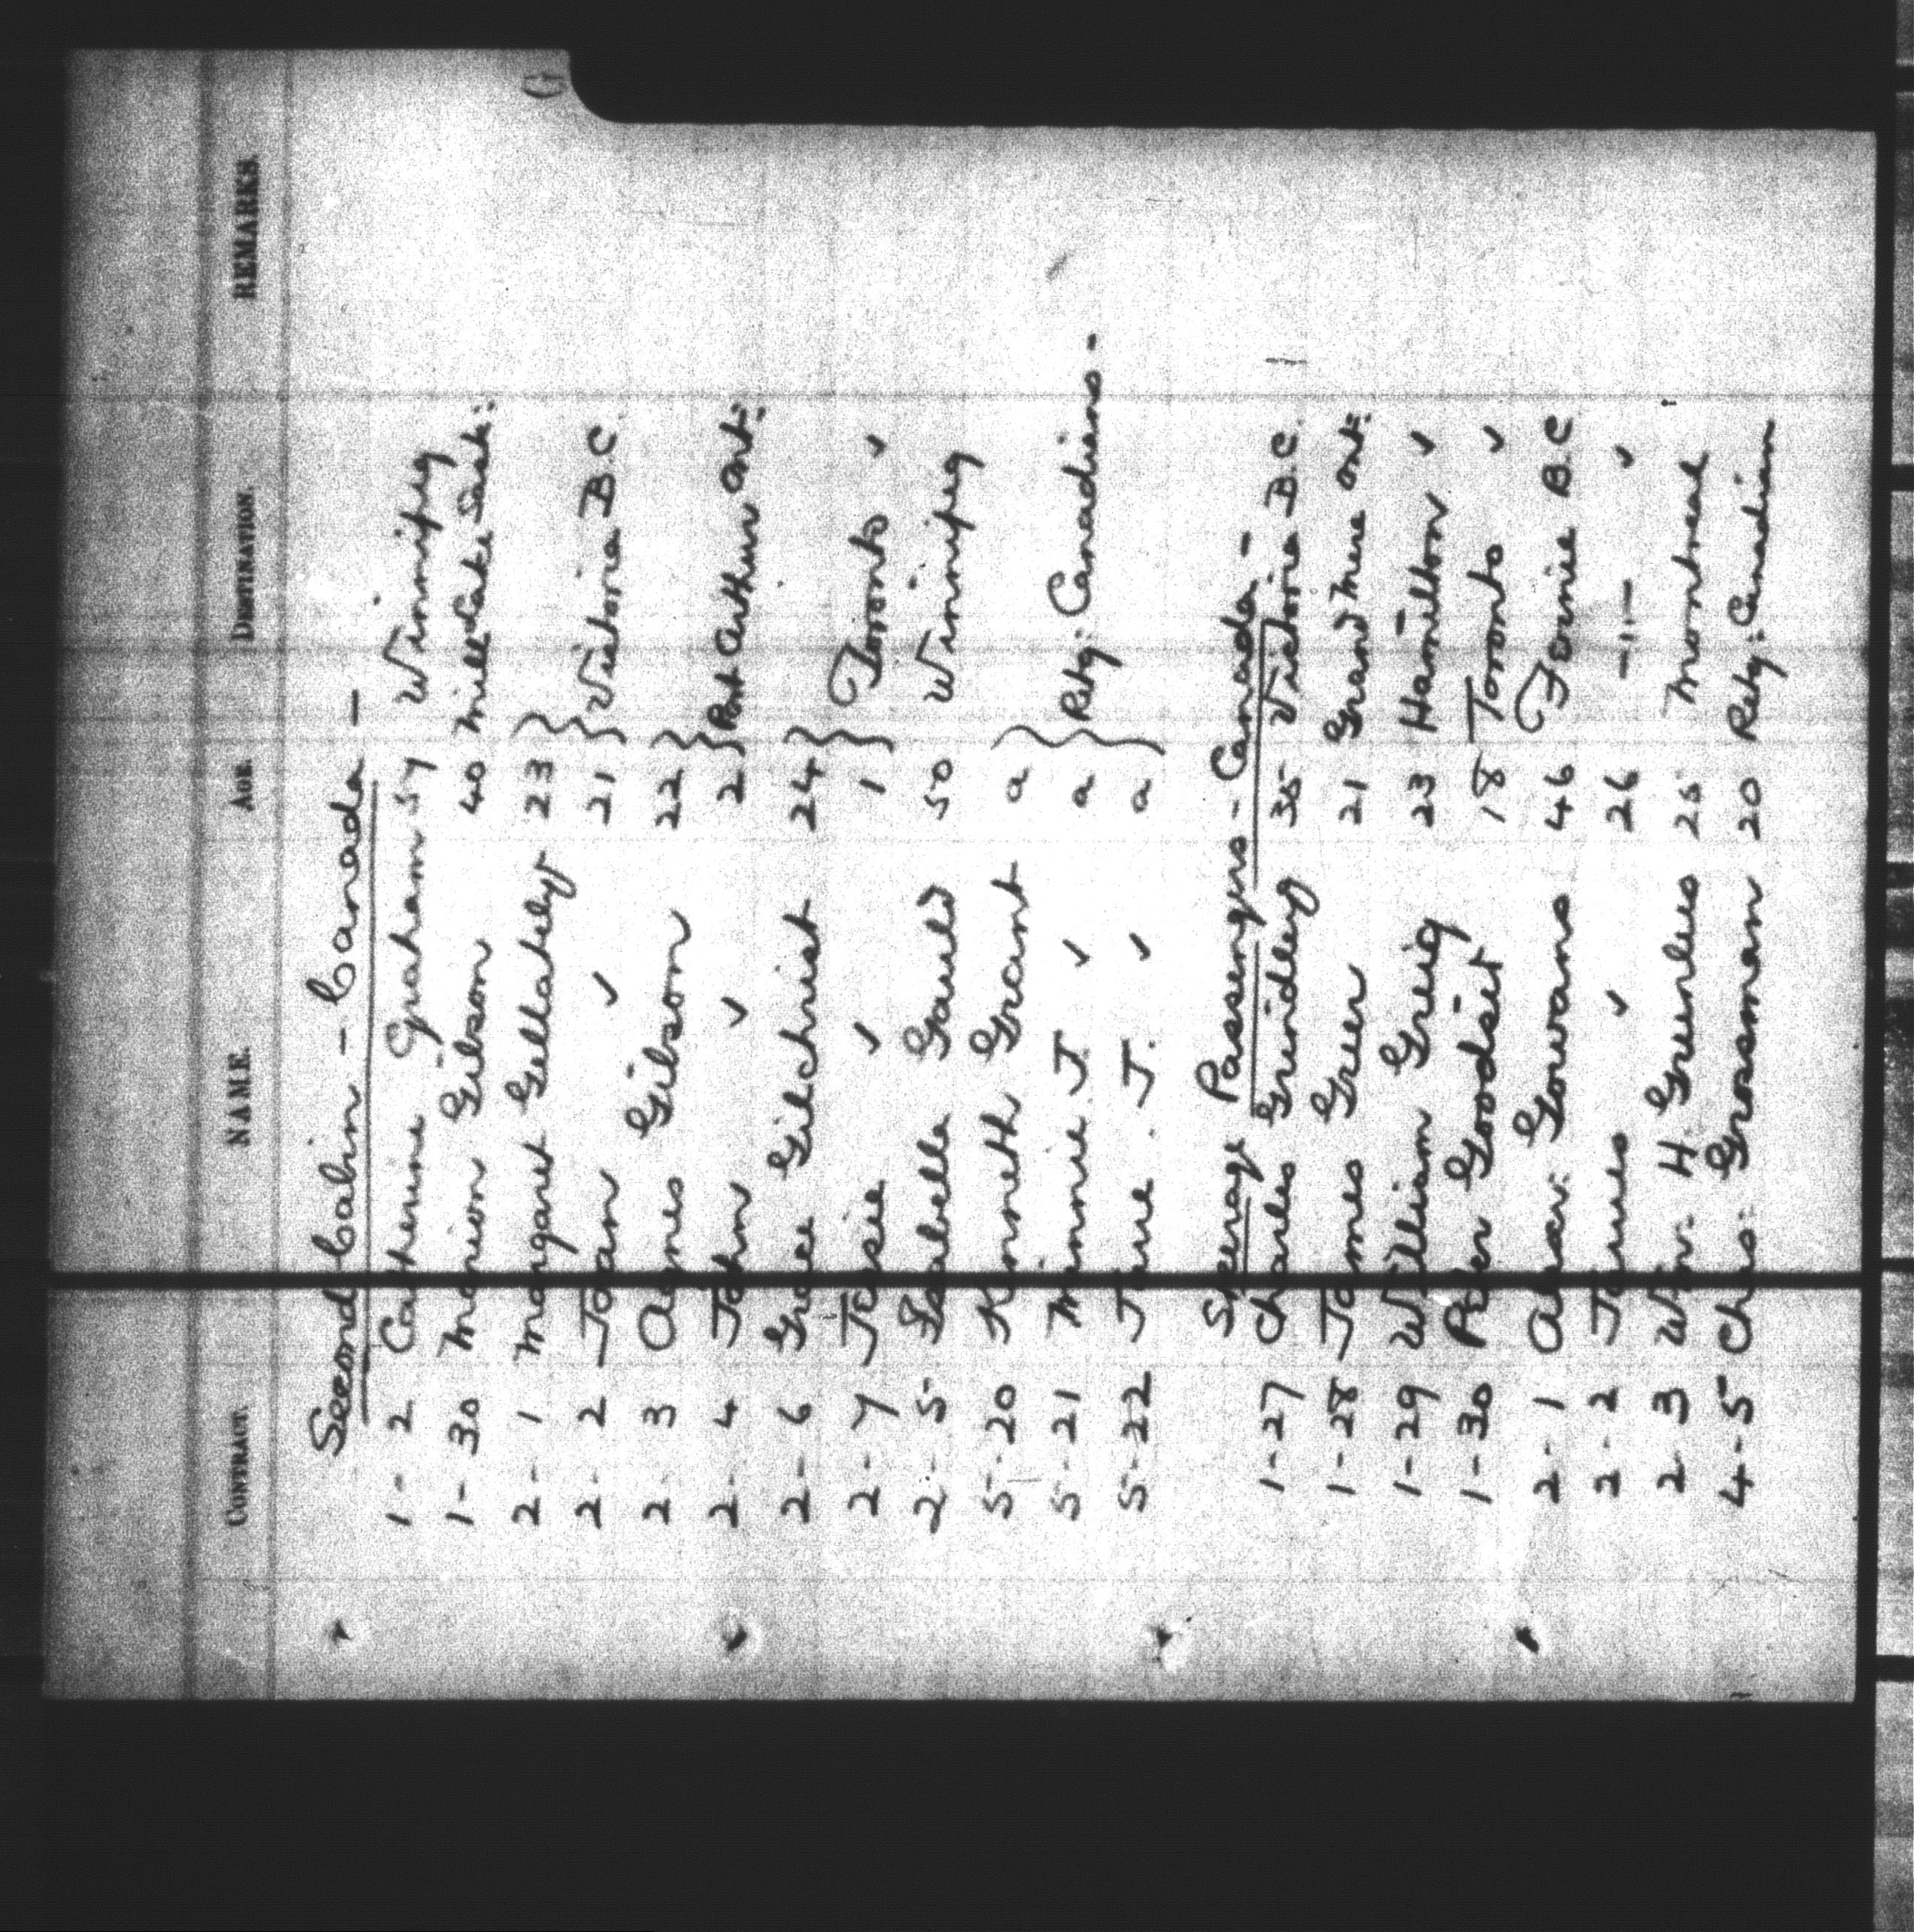 CONTRACT. NAME. AGE. DESTINATION. REMARKS.
Second Cabin - Canada -
1 - 2 Catherine Graham 57 Winnipeg
1 - 30 Marion Gibson 40 Mill Lake Sask:
2 - 1 Margaret Gellately 23 }
2 - 2 Joan ✓ 21 } Victoria B.C.
2 - 3 Agnes Gibson 22 }
2 - 4 John ✓ 2 } Port Arthur Ont:
2 - 6 Grace Gilchrist 24 }
2 - 7 Josie ✓ 1 } Toronto ✓
2 - 5 Isabella Gauld 50 Winnipeg
5 - 20 Kenneth Grant a }
5 - 21 Minnie J. ✓ a } Retg: Canadians -
5 - 22 J. ✓ a }
Steerage Passengers - Canada -
1 - 27 Charles Grindley 35 Victoria B.C.
1 - 28 James Greer 21 Grand Mere Ont:
1 - 29 William Greig 23 Hamilton ✓
1 - 30 Peter Goodsir 18 Toronto ✓
2 - 1 Alexr: Gowans 46 Fernie B.C
2 - 2 James ✓ 26 -"- ✓
2 - 3 Wm. H. Greenlees 25 Montreal
4 - 5 Chas: Grossman 20 Retg: Canadian